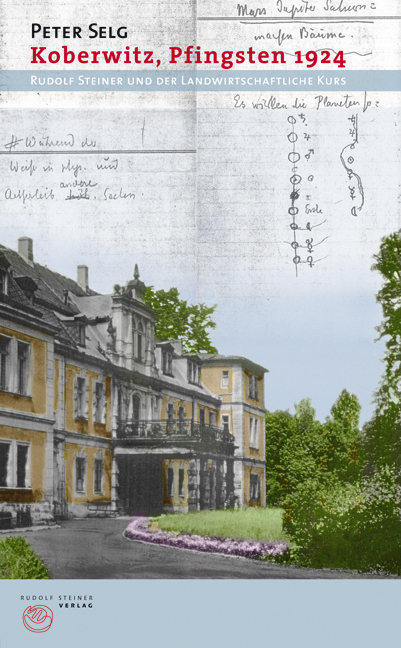 Mars Jupiter Saturn =
machen Bäume.
PETER SELG
Koberwitz, Pfingsten 1924
RUDOLF STEINER UND DER LANDWIRTSCHAFTLICHE KURS
Es wirken die Planeten
# Während der
Weiß in phys. und
andere
Sachen.
Erde
RUDOLF STEINER
VERLAG